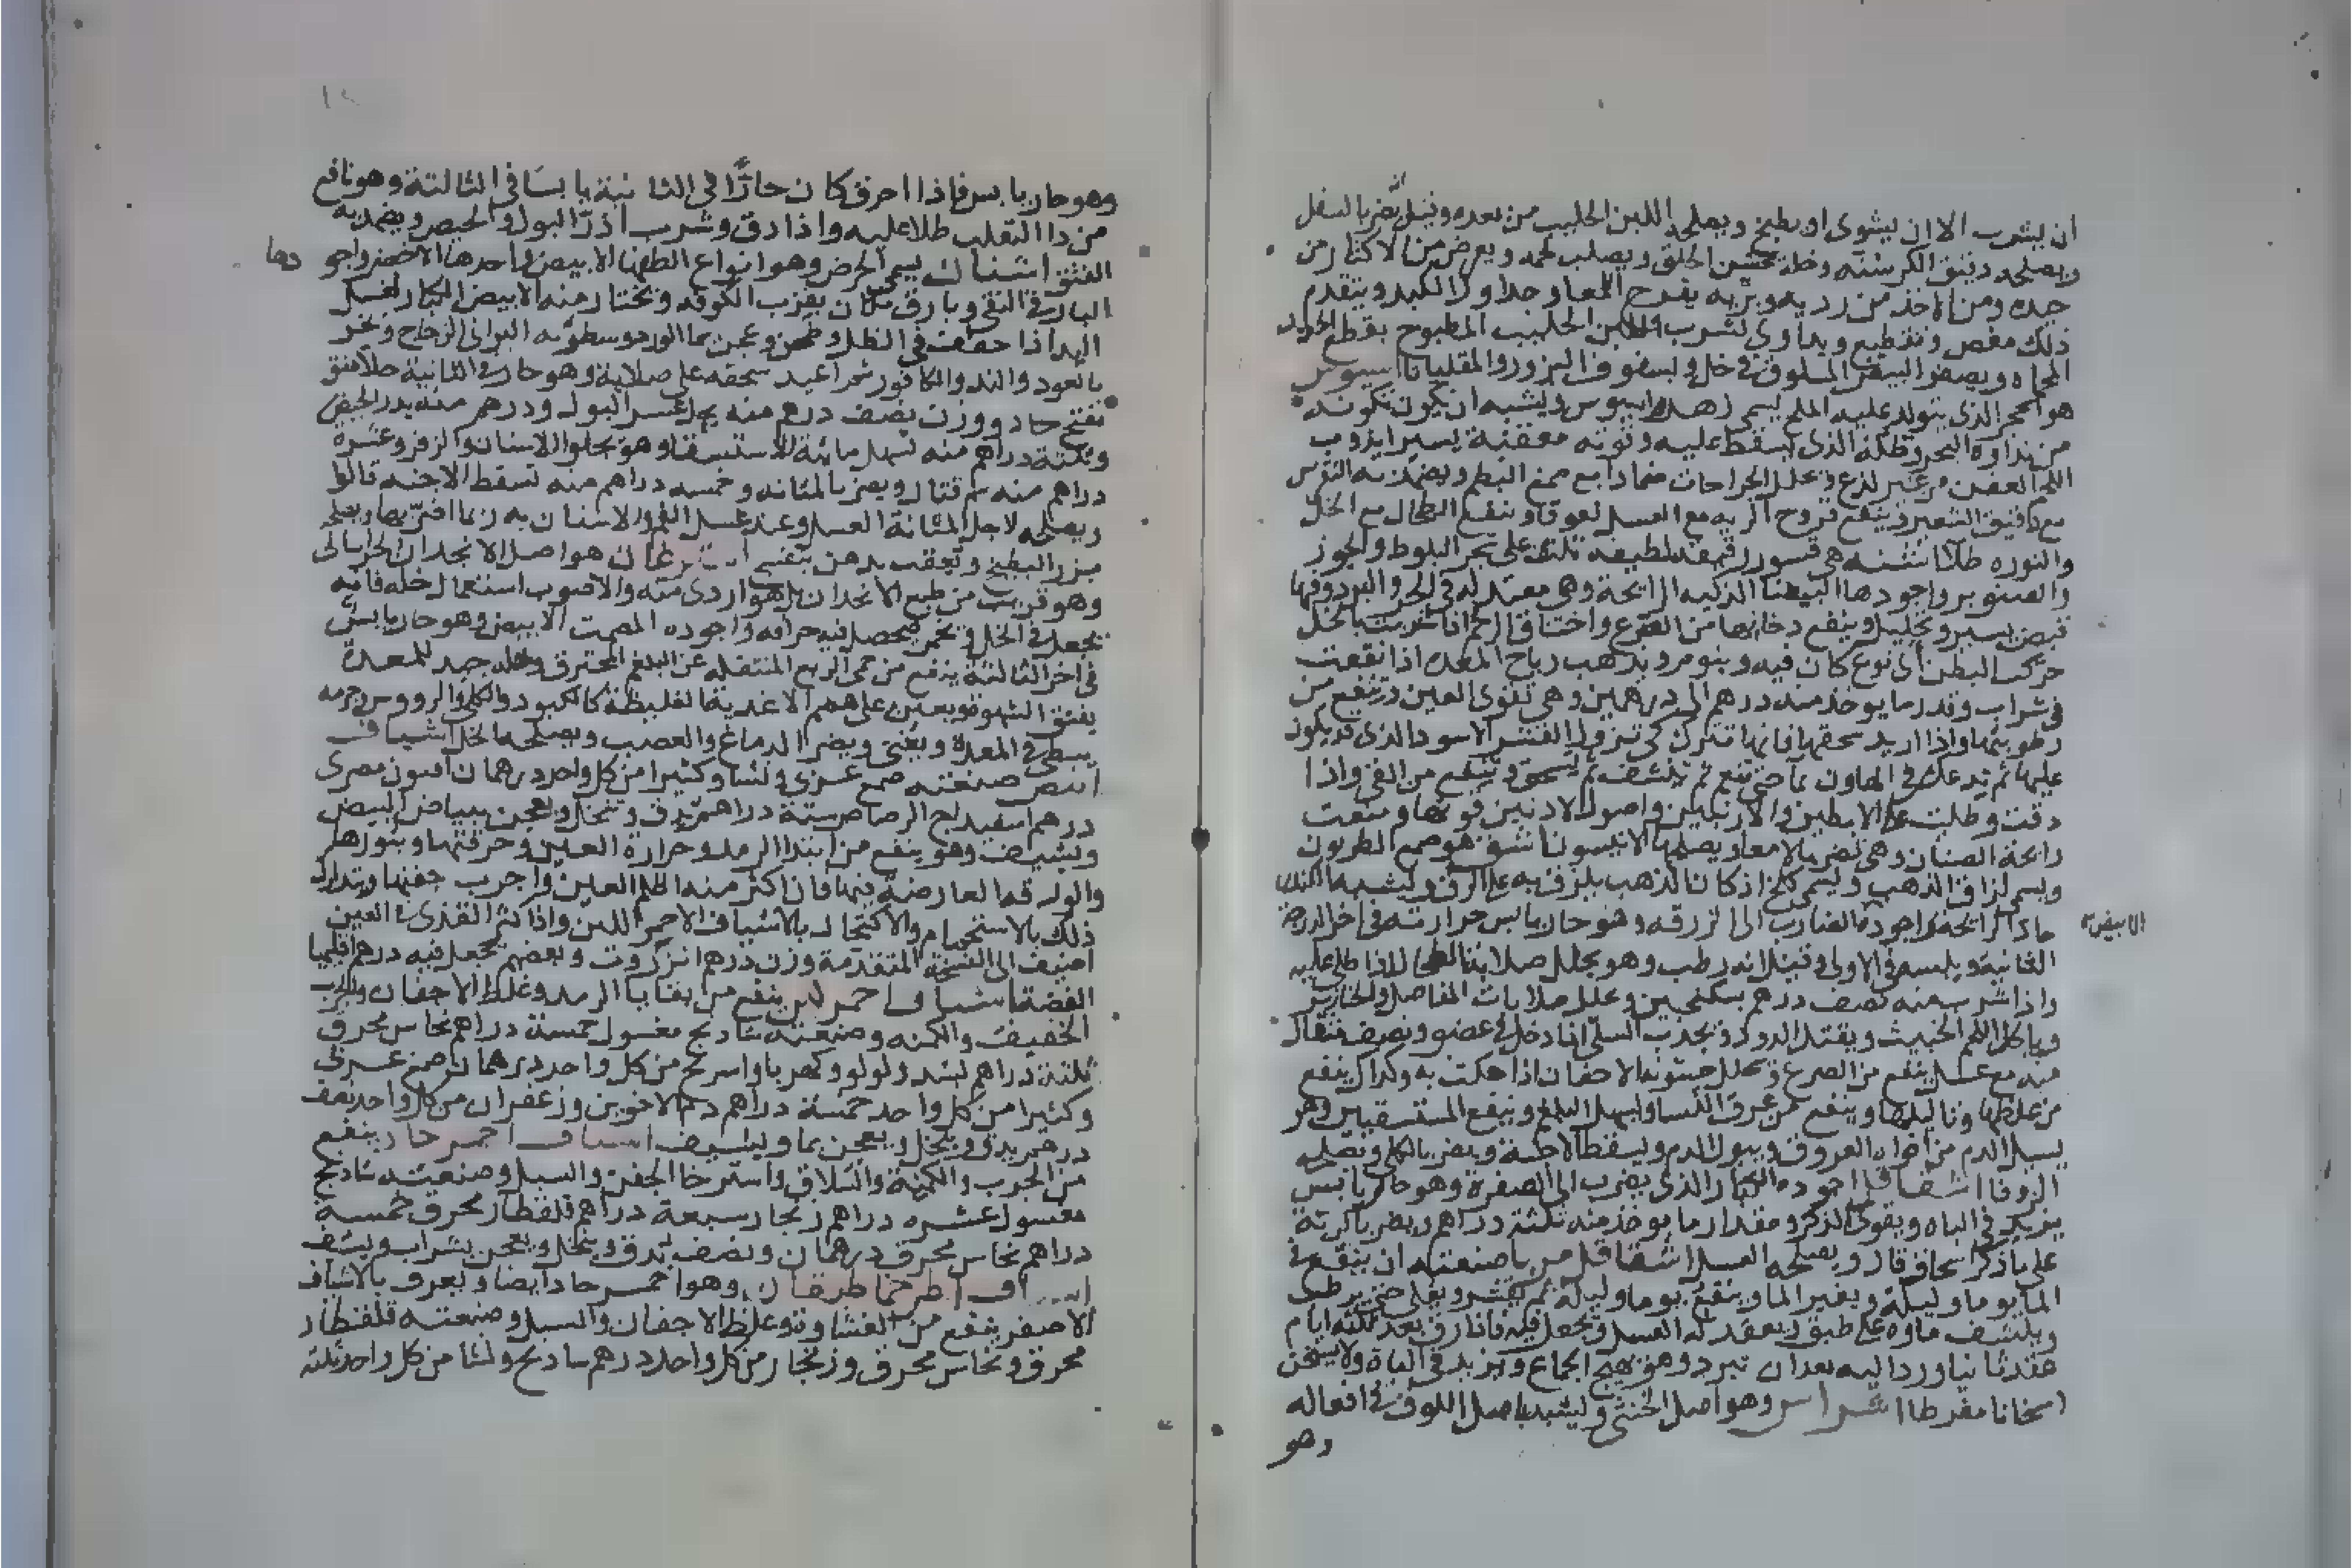 ان يشرب الا ان يشوى او يطبخ ويصلحه اللبن الحليب من بعده وقيل انه يضر بالسفل
ويصلحه دقيق الكرسنه وخله يخشن الحلق ويصلب لحمه ويعرض من الاكثار من
جيده ومن الاخذ من رديه وبريه يقرح المعا وجداول الكبد ويتقدم
ذلك مغص وتقطيع ويداوى بشرب اللبن الحليب المطبوخ بقطع الحديد
المحماه وبصفر البيض المسلوق في خل وبسفوف البزور والمقلياثا اسيوس
هو الحجر الذى يتولد عليه الملح يسمى زهرة اسيوس ويشبه ان يكون تكونه
من نداوة البحر وطله الذى يسقط عليه وقوته معفنة يسيرا يذوب
اللحم العفن من غير لذع ويحلل الجراحات ضمادا مع صمغ البطم ويضمد به النقرس
مع دقيق الشعير وينفع قروح الريه مع العسل لعوقا وينفع الطحال مع الخل
والنوره طلا اشنه هى قشور رقيقة لطيفه تلتف على شجر البلوط والجوز
والصنوبر واجودها البيضا الذكيه الرائحة وهى معتدله فى الحر والبرد وفيها
قبض يسير وتحليل وينفع دخانها من الصرع واختناق الرحم اذا شربت بالخل
حركت البطن اى نوع كان فيه وبنوم ويذهب رياح المعده اذا نقعت
فى شراب وقدر ما يوخذ منه درهم الى درهمين وهى تقوى العين وتنفع من
رطوبتها واذا اريد سحقها فانها تفرك كى تزول القشر الاسود الذى قد يكون
عليها ثم تدعك فى الهاون بما حتى تنع ثم ينشف ثم يسحق وينفع من القى واذا
دقت وطلت على الابطين والاربيتين واصول الاذنين قوتها ومنعت
رائحة الصنان وهى تضر بالامعا ويصلحها الانيسون اشق هو صمغ الطرثوث
ويسمى لزاق الذهب ويسمى كلخ اذ كان الذهب يلزق به على الرق ويشبه الكندر
حاد الرائحة واجوده الضارب الى الزرقه وهو حار يابس حرارته فى اخر الدرجة
الابيض
الثانية ويبسه فى الاولى وقيل انه رطب وهو يحلل صلابة الطحال اذا طلى عليه
واذا شرب منه نصف درهم بسكنجبين ويحلل صلابات المفاصل والخنازير
وياكل اللحم الخبيث ويقتل الدود ويجذب السلى اذا دخل فى عضو ونصف مثقال
منه مع عسل ينفع من الصرع ويحلل خشونة الاجفان اذا حكت به وكذلك ينفع
من غلظها وثاليلها وينفع من عرق النسا ويسهل البلغم وينفع المستسقيين وهو
يسيل الدم من افواه العروق ويبول الدم ويسقط الاجنة ويضر بالكلى ويصلحه
الزوفا اشقاقل اجوده الكبار الذى يضرب الى الصفرة وهو حار يابس
يزيد فى الباه ويقوى الذكر ومقدار ما يوخذ منه ثلثة دراهم ويضر بالريه
على ما ذكر اسحاق قال ويصلحه العسل اشقاقل مربا صنعته ان ينقع فى
الما يوما وليلة ويغير الما وينقع يوما وليلة ثم يقشر ويغلى حتى يرطب
وينشف ماوه على طبق ويعقد له العسل ويجعل فيه فاذا رق بعد ثلثه ايام
عقد ثانيا ورد اليه بعد ان تبرد وهو يهيج الجماع ويزيد فى الباه ولا يسخن
اسخانا مفرطا اشراس وهو اصل الخنثى ويشبه باصل اللوف فى افعاله
وهو
وهو حار يابس فاذا احرق كان حارًّا فى الثانية يابسًا فى الثالثة وهو نافع
من دا الثعلب طلا عليه واذا دق وشرب ادرّ البول والحيض ويضمد به
الفتق اشنان يسمى الحرض وهو انواع الطفها الابيض واحدها الاخضر واجو
دها
البارق النقى وبارق مكان بقرب الكوفه ويختار منه الابيض الكبار لغسل
اليد اذا جففت فى الظل وطحن وعجن بما الورد وسطر به البرانى الزجاج وبخر
بالعود والند والكافور ثم اعيد سحقه على صلاية وهو حار فى الثانية جلا منق
مفتح حاد ووزن نصف درهم منه يحل عسر البول ودرهم منه يدر الحيض
وثلثة دراهم منه تسهل مائية الاستسقا وهو يجلو الاسنان والزفر وعشرة
دراهم منه سم قتال ويضر بالمثانه وخمسه دراهم منه تسقط الاجنه قالوا
ويصلحه لاجل المثانة العسل وعند غسل الفم والاسنان به ربما اضرّ بها ويصلحه
بزر البطيخ وتعقب بدهن بنفسج اشترغان هو اصل الانجدان الخراسانى
وهو قريب من طبع الانجدان بل هو اردى منه والاصوب استعمال خله فانه
يجعل فى الخل ويخمر فيحصل فيه حرافه واجوده المصمت الابيض وهو حار يابس
فى اخر الثالثة ينفع من حمى الربع المنتقله عن البلغم المحترق وخله جيد للمعدة
يفتق الشهوة ويعين على هضم الاغدية الغليظة كالكبود والكلى والرووس وجرمه
يبطى فى المعدة ويغثى ويضر الدماغ والعصب ويصلحه الخل اشياف
ابيض صنعته صمغ عربى ونشا وكثيرا من كل واحد درهمان افيون مصرى
درهم اسفيداج الرصاص ستة دراهم يدق وينخل ويعجن ببياض البيض
ويشيف وهو ينفع من ابتدا الرمد وحرارة العين وحرقتها وبثورها
والورقه العارضة فيها فان اكثر منه اظلم العين واجرب جفنها ويتدارك
ذلك بالاستحمام والاكتحال بالاشياف الاحمر اللين واذا كثر القذى فى العين
اضيف الى النسخة المتقدمة وزن درهم انزروت وبعضهم يجعل فيه درهم اقليميا
الفضة اشياف احمر لين ينفع من بقايا الرمد وغلظ الاجفان والجرب
الخفيف والكمنه وصنعته شادنج مغسول خمسة دراهم نحاس محرق
ثلثة دراهم بسد ولولو وكهربا واسرنج من كل واحد درهمان صمغ عربى
وكثيرا من كل واحد خمسة دراهم دم الاخوين وزعفران من كل واحد نصف
درهم يدق وينخل ويعجن بما ويشيف اشياف احمر حاد ينفع
من الجرب والكمنة والسلاق واسترخا الجفن والسبل وصنعته شادنج
مغسول عشره دراهم زنجار سبعة دراهم قلقطار محرق خمسة
دراهم نحاس محرق درهمان ونصف يدق وينخل ويعجن بشراب ويشف
اشياف اطرخماطيقان وهو احمر حاد ايضا ويعرف بالاشياف
الاصفر ينفع من الغشاوة وغلظ الاجفان والسبل وصنعته قلقطار
محرق ونحاس محرق وزنجار من كل واحد درهم سادنج ونشا من كل واحد ثلثة